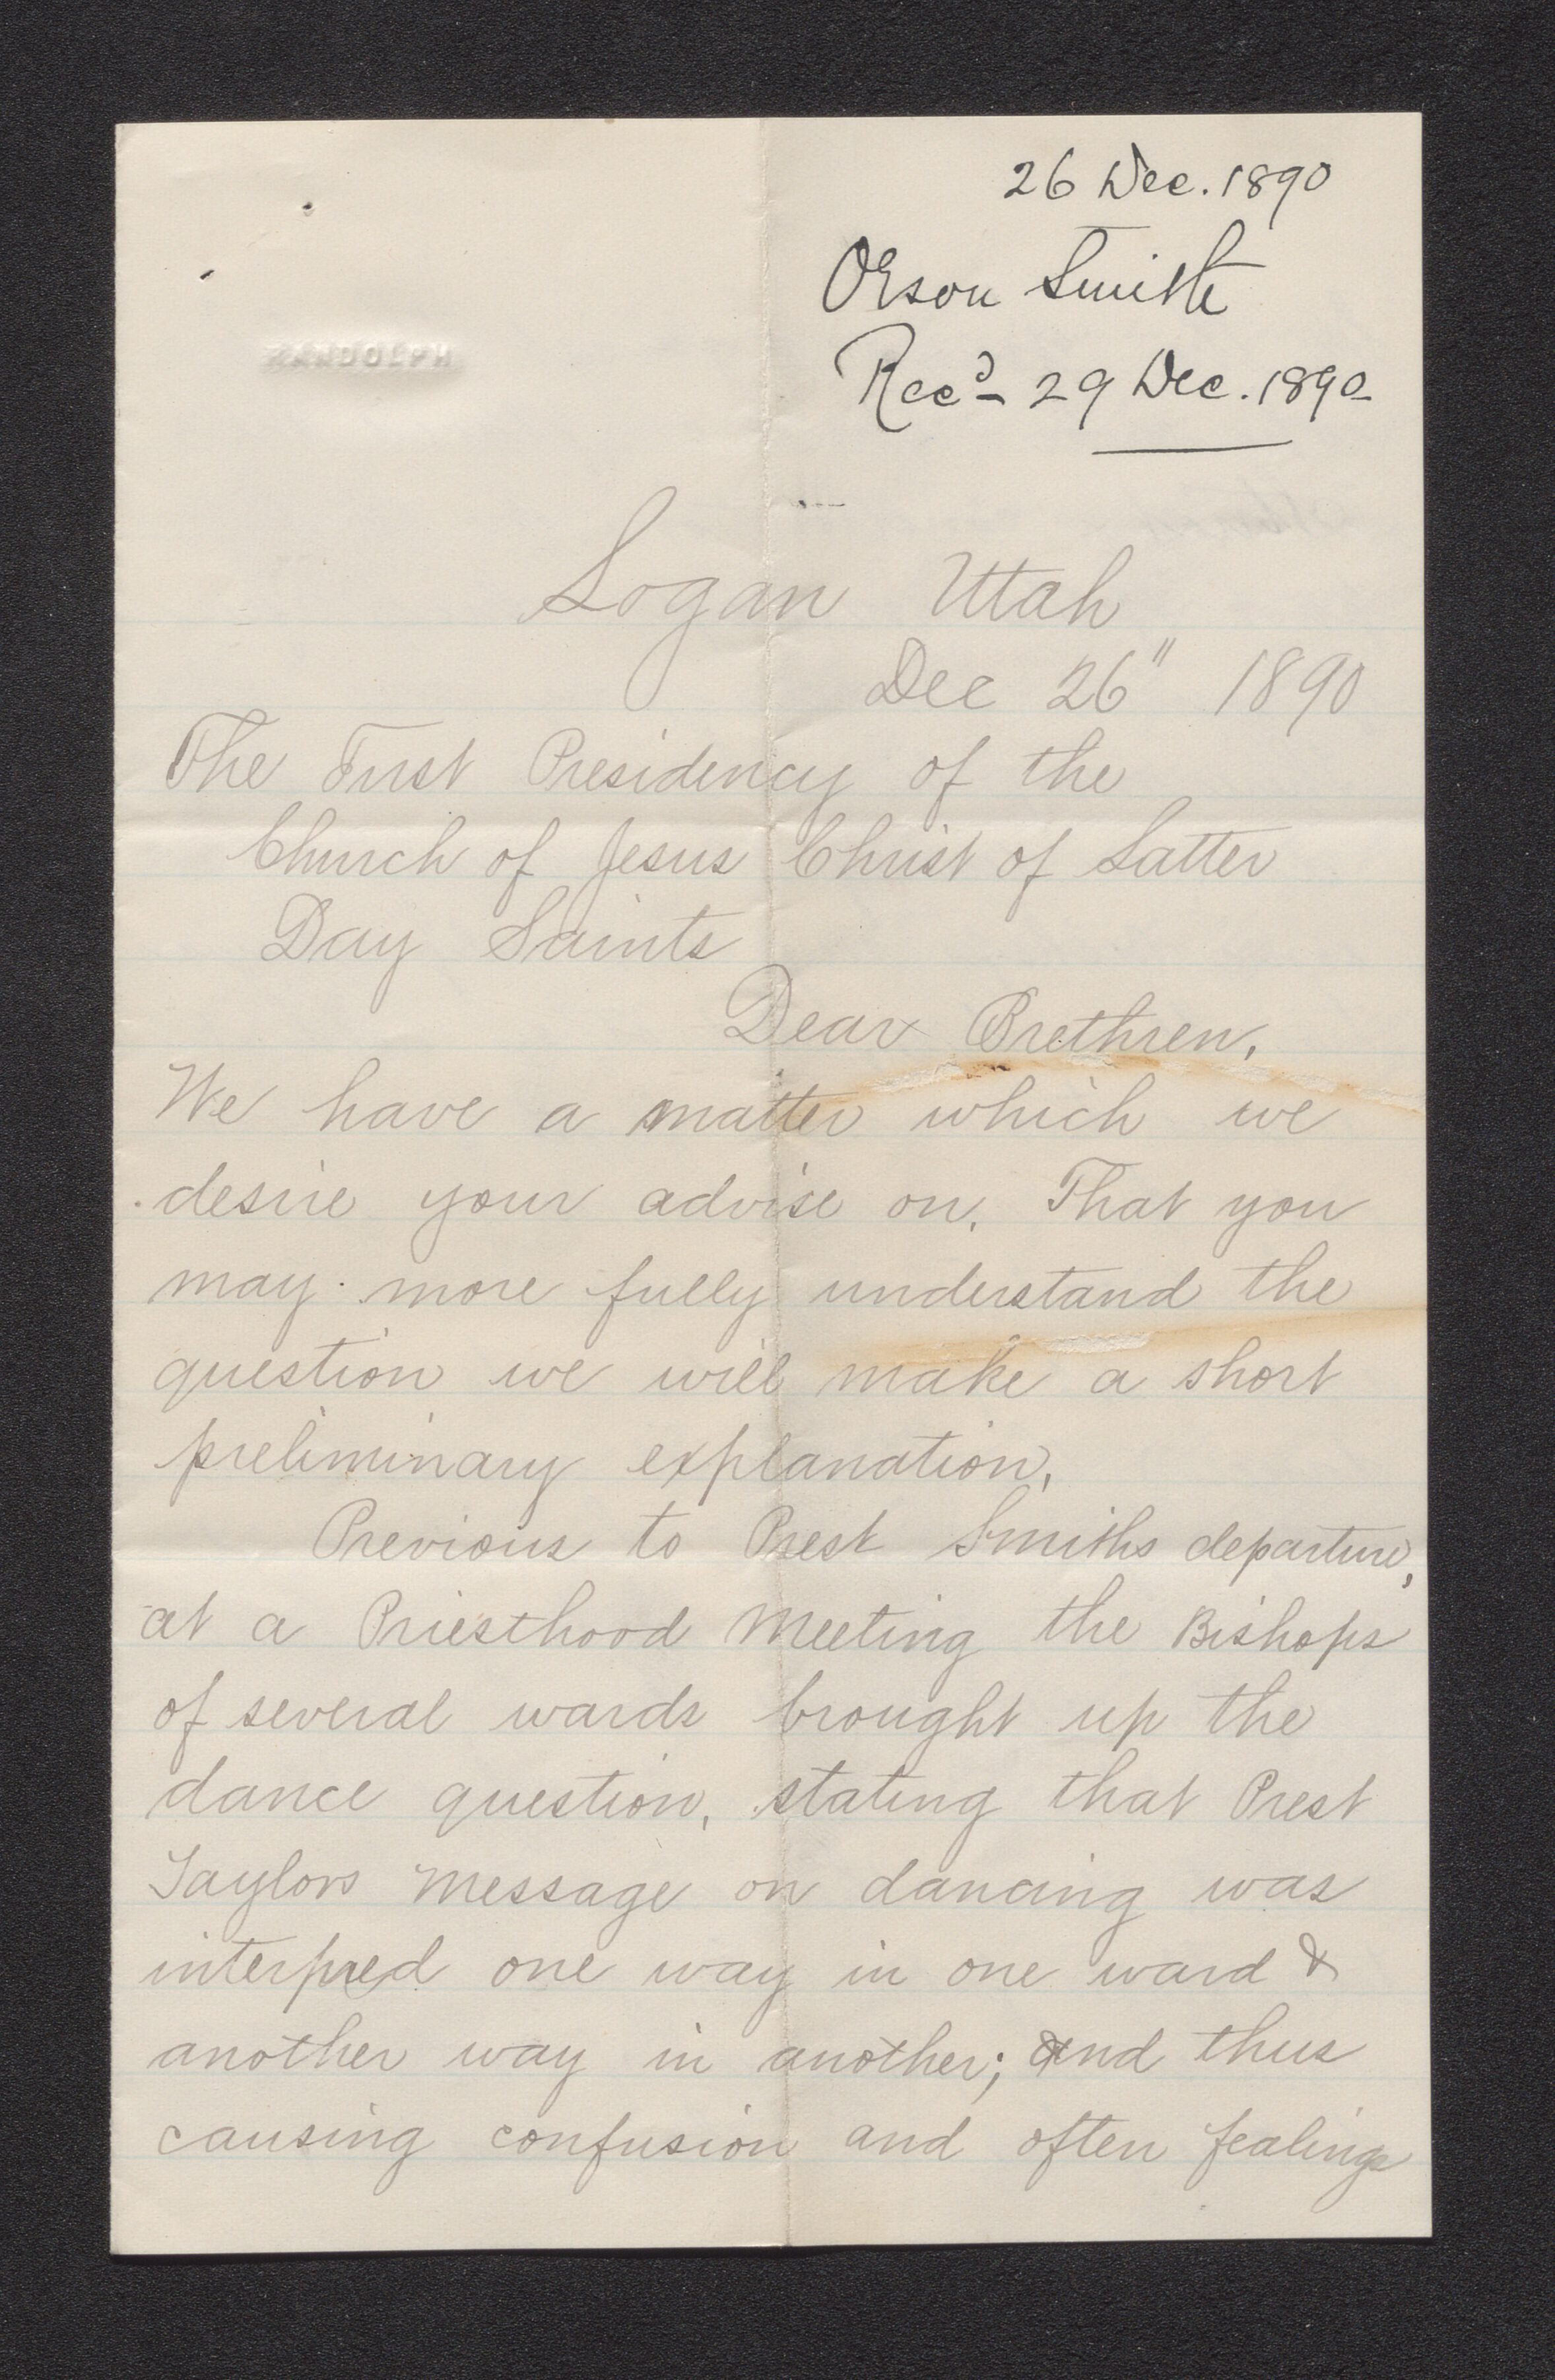 26 Dec. 1890
Orson Smith
Recd- 29 Dec. 1890-
RANDOLPH
Logan Utah
Dec 26" 1890
The First Presidency of the
Church of Jesus Christ of Latter
Day Saints
Dear Brethren,
We have a matter which we
desire your advise on. That you
may more fully understand the
question we will make a short
preliminary explanation.
Previous to Prest Smiths departure,
at a Priesthood Meeting the Bishops
of several wards brought up the
dance question, stating that Prest
Taylors Message on dancing was
interpred one way in one ward &
another way in another; and thus
causing confusion and often fealings